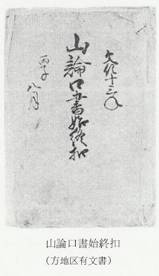 文化十三年
山論口書始終扣
丙子
八月
山論口書始終扣
（方地区有文書）